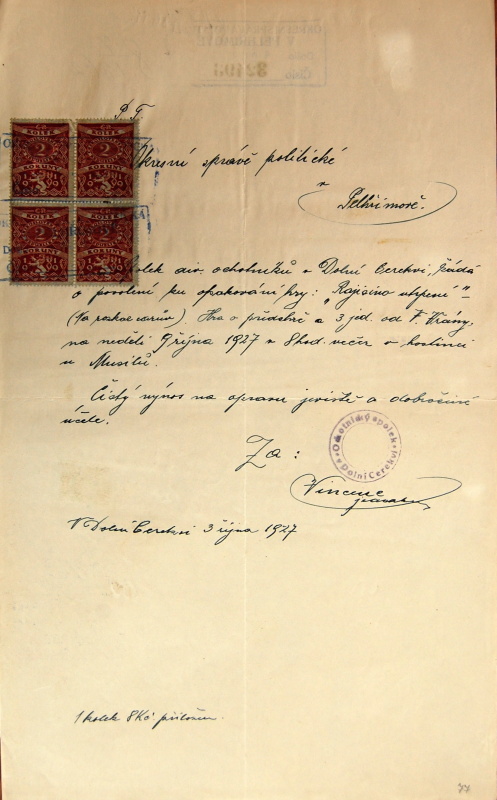 P. T.
Okresní správě politické
v
Pelhřimově.
Spolek div. ochotníků v Dolní Cerekvi, žádá
o povolení ku opakování hry: „
(Za rakve carův). Hra o předehře a 3 jed. od F. Vrány,
na neděli 9 října 1927 v 8 hod. večer v hostinci
u Musilů.
Čistý výnos na opravu jeviště a dobročinné
účele.
Za:
Ochotnický spolek
Dolní Cerekvi
Vincenc
V Dolní Cerekvi 3 října 1927
1 kolek 8 Kč přiložen.
KOLEK
2
KORUNY
KOLEK
2
KORUNY
KOLEK
2
KORUNY
KOLEK
2
KORUNY
77